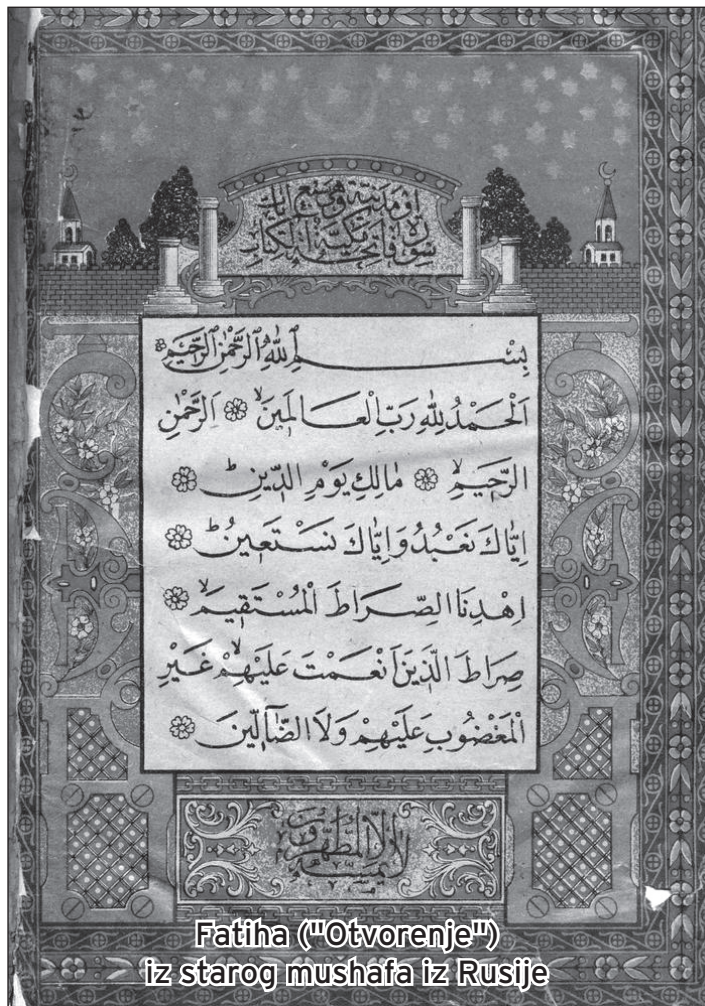 سورة فاتحة الكتاب مكية
او مدنية وهي سبع ايات
بِسْمِ اللّٰهِ الرَّحْمٰنِ الرَّحِيمِ
اَلْحَمْدُ لِلّٰهِ رَبِّ الْعَالَمِينَۙ ۝ اَلرَّحْمٰنِ
الرَّحِيمِۙ ۝ مَالِكِ يَوْمِ الدِّينِۜ ۝
اِيَّاكَ نَعْبُدُ وَاِيَّاكَ نَسْتَعِينُۜ ۝
اِهْدِنَا الصِّرَاطَ الْمُسْتَقِيمَۙ ۝
صِرَاطَ الَّذِينَ اَنْعَمْتَ عَلَيْهِمْۙ غَيْرِ
الْمَغْضُوبِ عَلَيْهِمْ وَلَا الضَّٓالِّينَ ۝
لَا يَمَسُّهُ اِلَّا الْمُطَهَّرُونَ
Fatiha ("Otvorenje")
iz starog mushafa iz Rusije